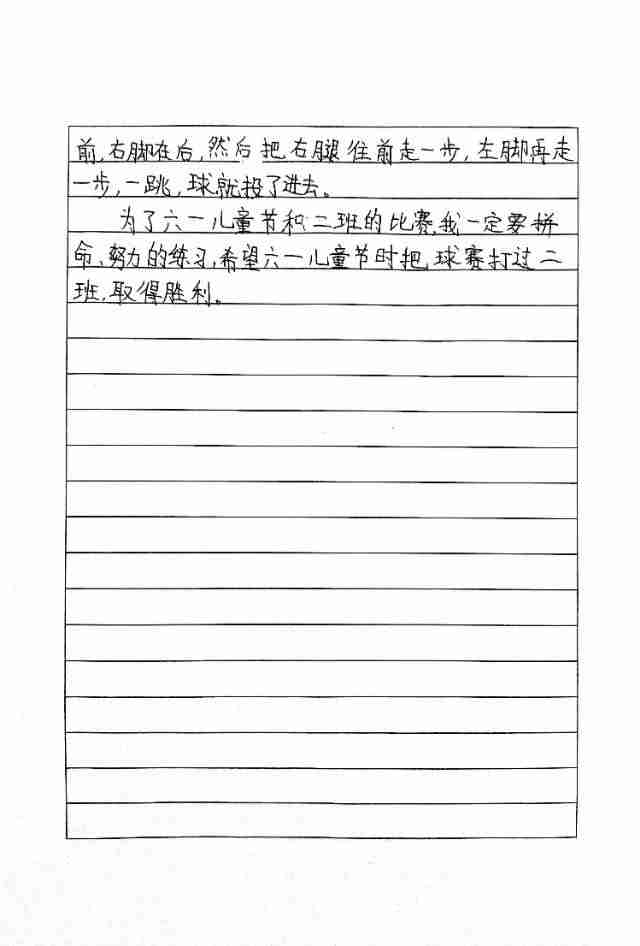 前,右脚在后,然后把右腿往前走一步,左脚再走
一步,一跳,球就投了进去。
为了六一儿童节和二班的比赛,我一定要拼
命、努力的练习,希望六一儿童节时把球赛打过二
班,取得胜利。